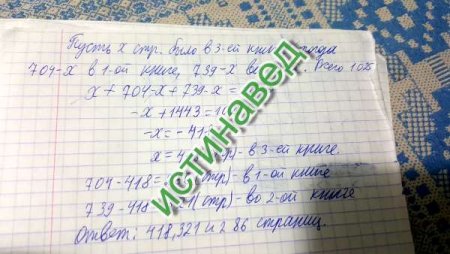 Пусть х стр. было в 3-ей
704-х в 1-ой книге, 739-х Всего
х + 704-х + 739-х =
-х + 1443 =
-х = -
х = (стр)- в 3-ей книге
704-418= (стр)- в 1-ой книге
739-418 (стр)- во 2-ой книге
Ответ: 418,321 и 286 страниц.
истинавед